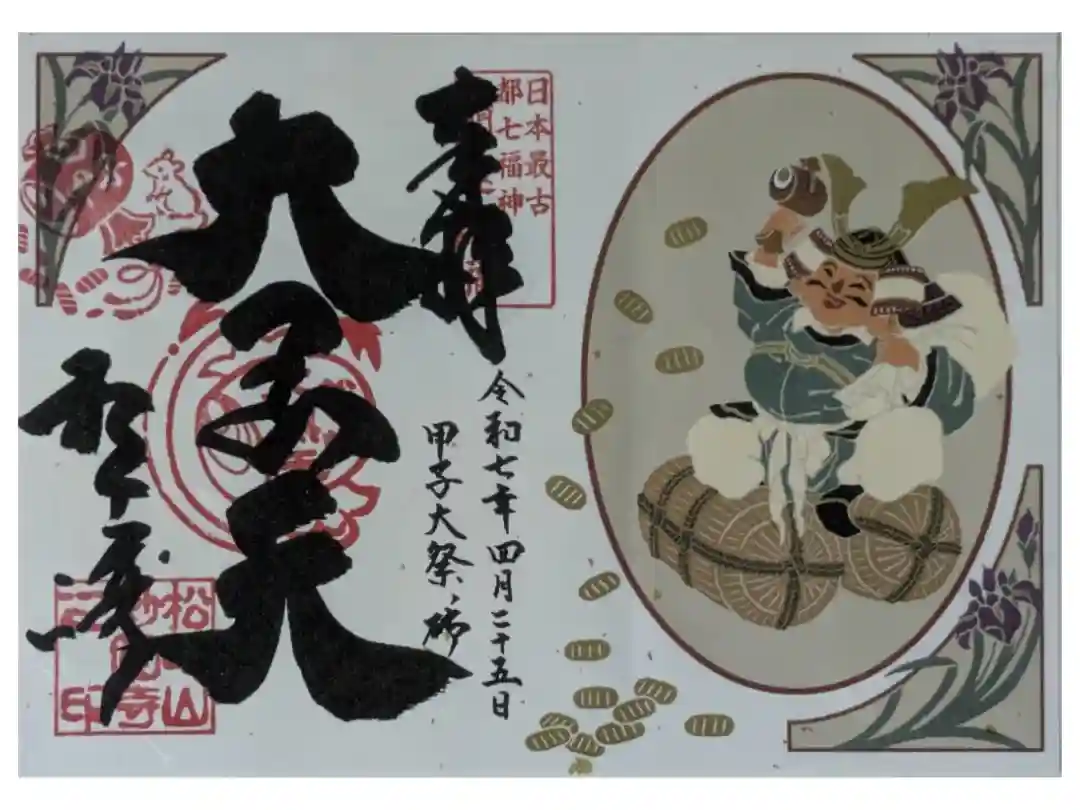 日本最古
都七福神
奉拝
令和七年四月二十五日
甲子大祭
大黒天
松ヶ崎